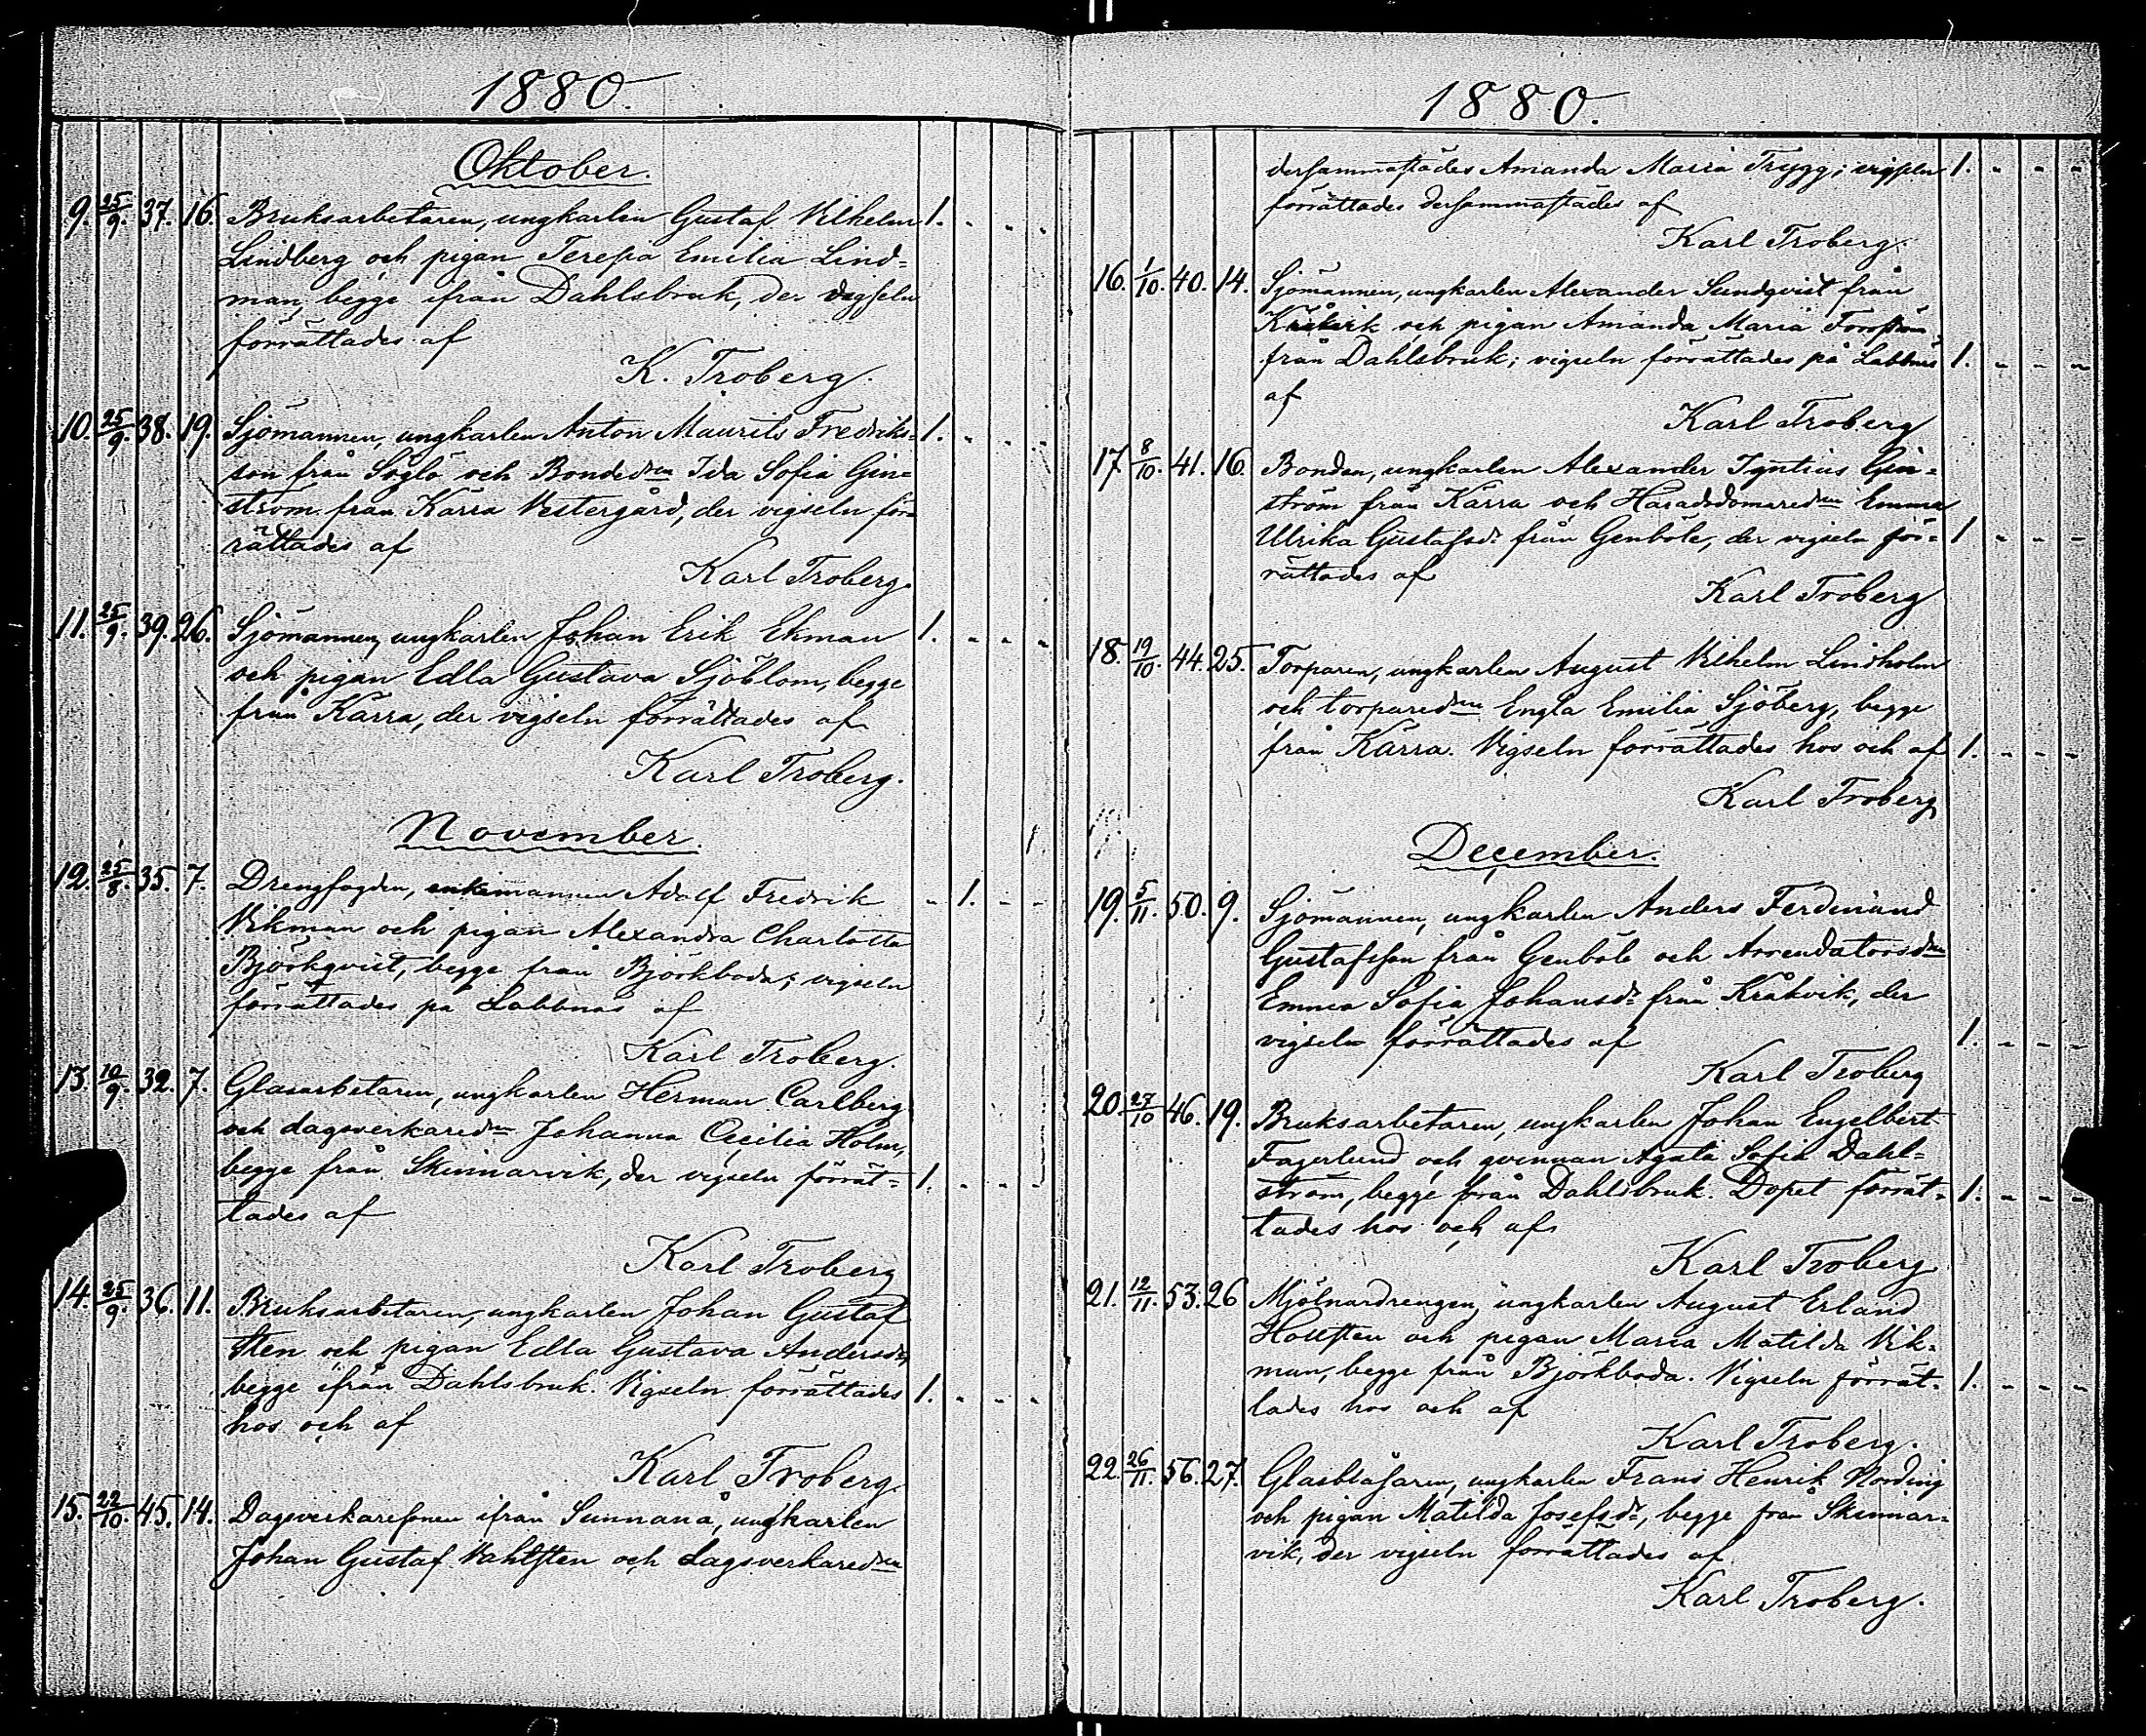 1880.
Oktober.
9. 25/9. 37. 16. Bruksarbetaren, ungkarlen Gustaf Vilhelm 1. - - -
Lindberg och pigan Teresia Emilia Lind=
man, begge ifrån Dahlsbruk, der vigseln
förrättades af
K. Troberg.
10. 25/9. 38. 19. Sjömannen, ungkarlen Anton Maurits Fredriks= 1. - - -
son från Söglö och Bondedrn Ida Sofia Gin=
ström från Kärra Vestergård, der vigseln för=
rättades af
Karl Troberg.
11. 25/9. 39. 26. Sjömannen, ungkarlen Johan Erik Ekman 1. - - -
och pigan Edla Gustava Sjöblom, begge
från Kärra, der vigseln förrättades af
Karl Troberg.
November.
12. 25/8. 35. 7. Drengfogden, enkemannen Adolf Fredrik - 1. - -
Vikman och pigan Alexandra Charlotta
Björkqvist, begge från Björkboda; vigseln
förrättades på Labbnäs af
Karl Troberg.
13. 10/9. 32. 7. Glasarbetaren, ungkarlen Herman Carlberg
och dagsverkaredrn Johanna Cecilia Holm,
begge från Skinnarvik, der vigseln förrät= 1. - - -
tades af
Karl Troberg
14. 25/9. 36. 11. Bruksarbetaren, ungkarlen Johan Gustaf
Sten och pigan Edla Gustava Andersdr,
begge ifrån Dahlsbruk. Vigseln förrättades 1. - - -
hos och af
Karl Troberg.
15. 22/10. 45. 14. Dagsverkaresonen ifrån Sunnanå, ungkarlen
Johan Gustaf Vahlsten och dagsverkaredrn
1880.
dersammastädes Amanda Maria Trygg; vigseln 1. - - -
förrättades dersammastädes af
Karl Troberg.
16. 1/10. 40. 14. Sjömannen, ungkarlen Alexander Sundqvist från
Kråkvik och pigan Amanda Maria Forsström
från Dahlsbruk; vigseln förrättades på Labbnäs 1. - - -
af
Karl Troberg
17 8/10. 41. 16. Bonden, ungkarlen Alexander Igntius Gin=
ström från Kärra och Häradsdomaredrn Emma
Ulrika Gustafsdr från Genböle, der vigseln för= 1 - - -
rättades af
Karl Troberg
18. 19/10. 44. 25. Torparen, ungkarlen August Vilhelm Lindholm
och torparedrn Engla Emilia Sjöberg, begge
från Kärra. Vigseln förrättades hos och af 1. - - -
Karl Troberg
December.
19. 5/11. 50. 9. Sjömannen, ungkarlen Anders Ferdinand
Gustafsson från Genböle och Arrendatorsdrn
Emma Sofia Johansdr från Kråkvik, der
vigseln förrättades af 1. - - -
Karl Troberg
20. 27/10 46. 19. Bruksarbetaren, ungkarlen Johan Engelbert
Fagerlund och qvinnan Agata Sofia Dahl=
ström, begge från Dahlsbruk. Dopet förrät= 1. - - -
tades hos och af
Karl Troberg
21. 12/11. 53. 26 Mjölnardrengen, ungkarlen August Erland
Hollsten och pigan Maria Matilda Vik=
man, begge från Björkboda. Vigseln förrät= 1. - - -
tades hos och af
Karl Troberg.
22. 26/11. 56. 27. Glasblåsaren, ungkarlen Frans Henrik Nording
och pigan Matilda Josefsdr, begge från Skinnar=
vik, der vigseln förrättades af
Karl Troberg.